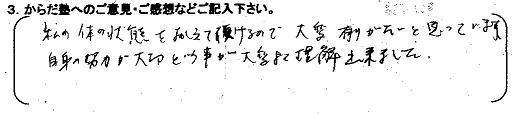 3. からだ塾へのご意見・ご感想などご記入下さい。
私の体の状態を教えて頂けるので 大変 有りがたいと思っています
自身の努力が大切という事が大変よく理解出来ました。